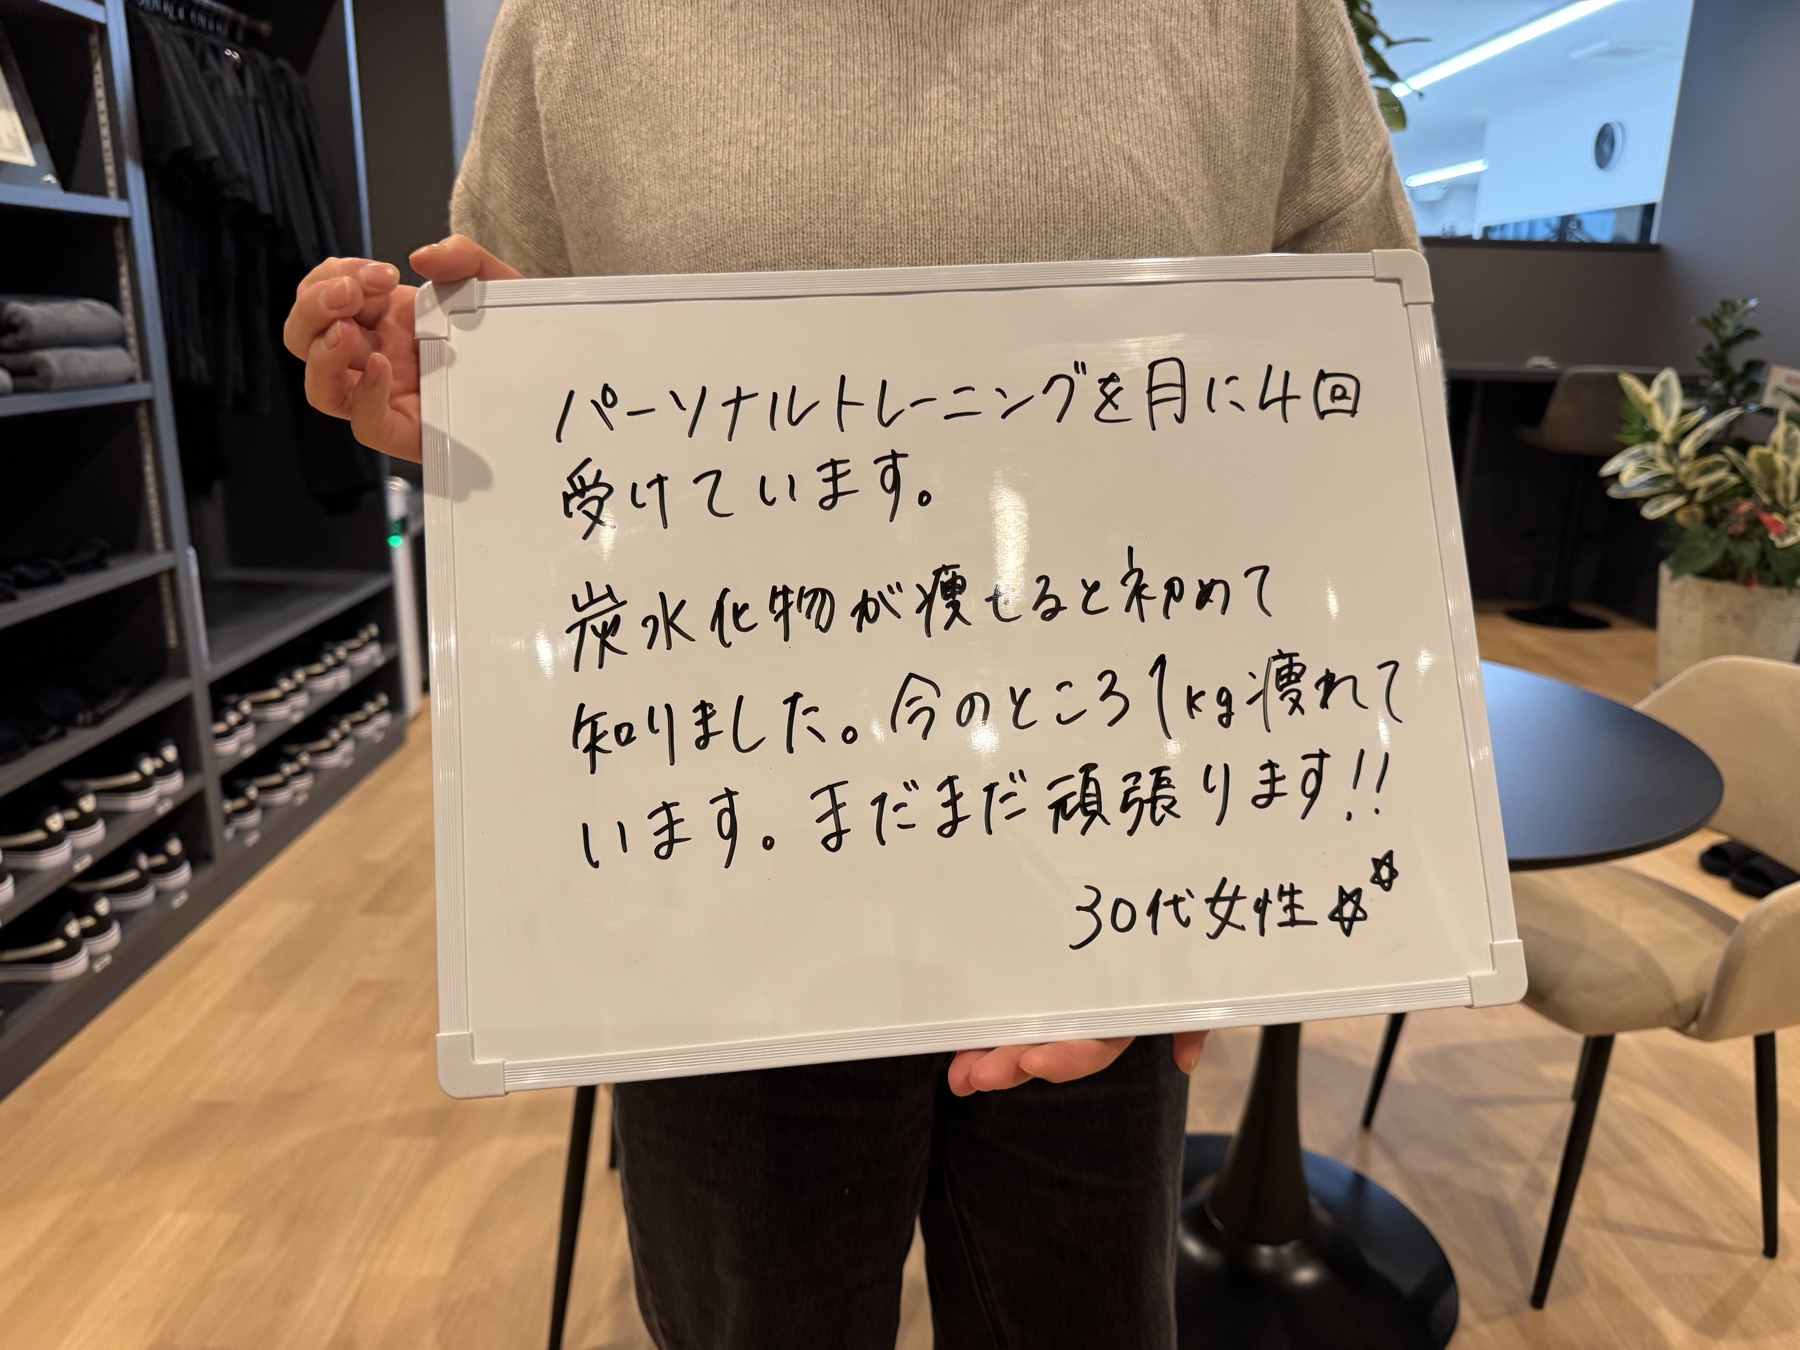 パーソナルトレーニングを月に4回
受けています。
炭水化物が痩せると初めて
知りました。今のところ1kg痩れて
います。まだまだ頑張ります!!
30代女性☆☆